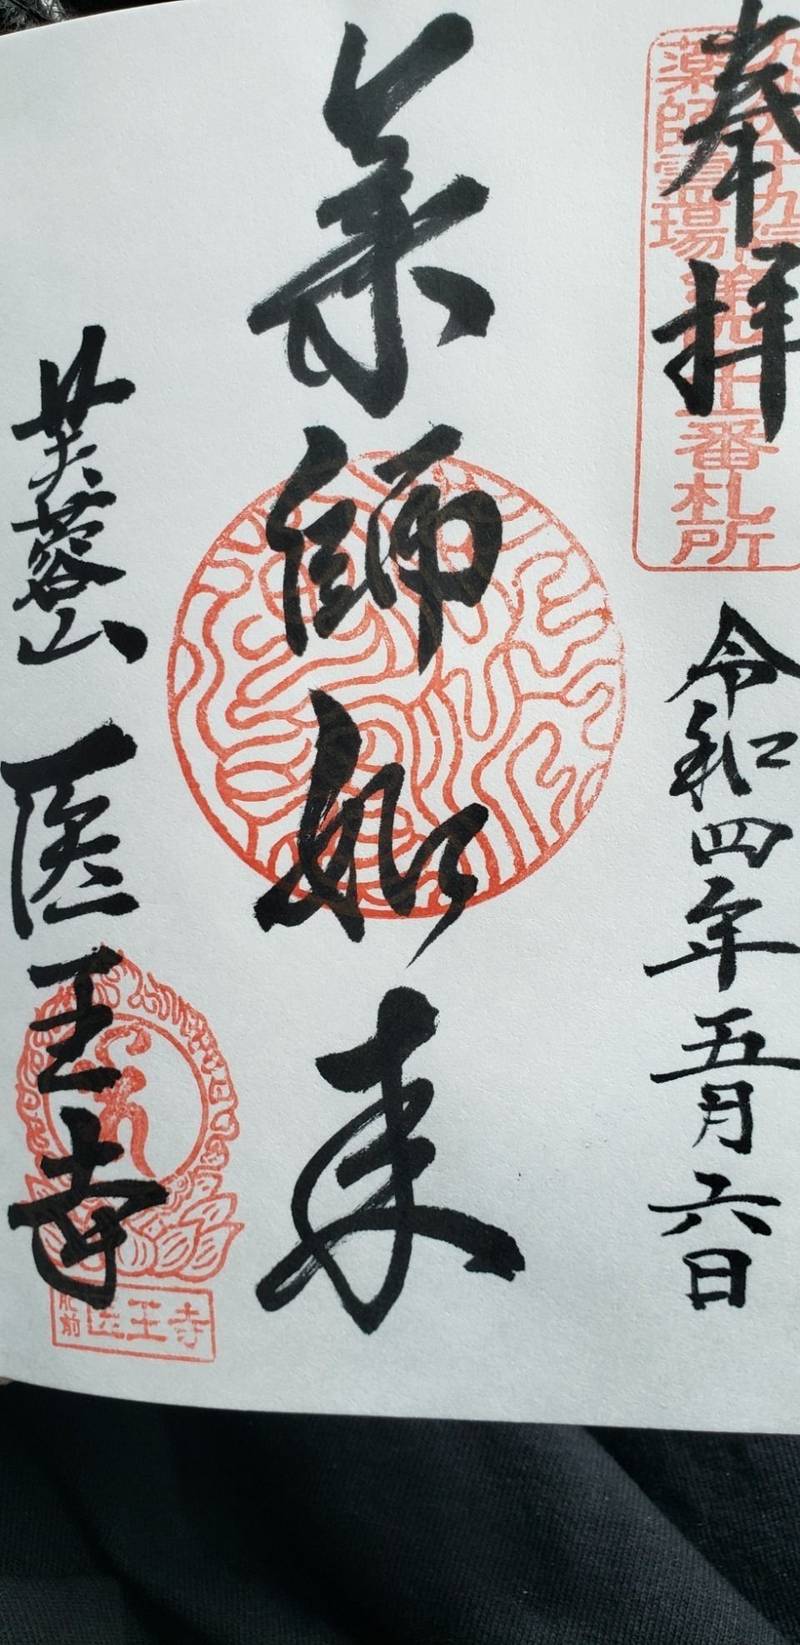 奉拝
薬師霊場
番札所
令和四年五月六日
薬師如来
芙蓉山 医王寺
肥前 医王寺